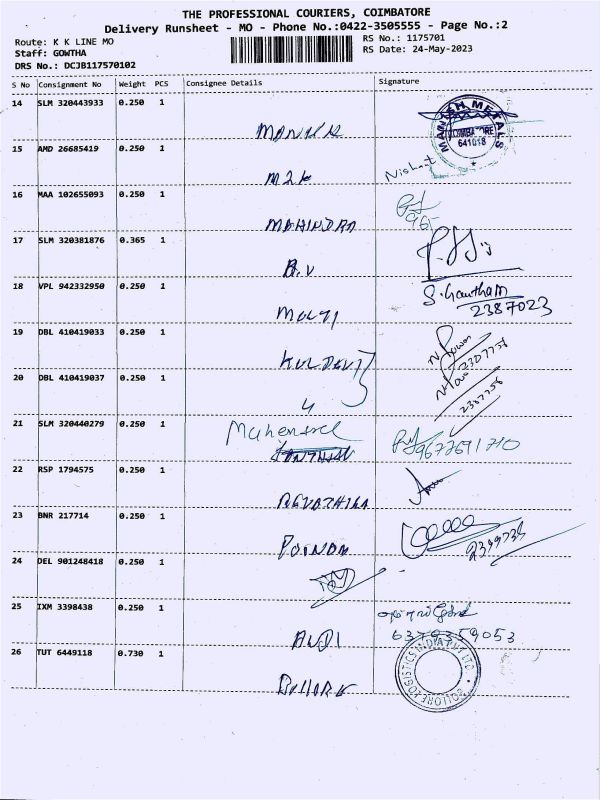 THE PROFESSIONAL COURIERS, COIMBATORE
Delivery Runsheet - MO - Phone No.:0422-3505555 - Page No.:2
Route: K K LINE MO
RS No.: 1175701
Staff: GOWTHA
RS Date: 24-May-2023
DRS No.: DCJB117570102
S No Consignment No Weight PCS Consignee Details Signature
14 SLM 320443933 0.250 1
MANISH METALS
COIMBATORE
641018
15 AMD 26685419 0.250 1
Nishat
16 MAA 102655093 0.250 1
MAHINDRA
17 SLM 320381876 0.365 1
B.V
18 VPL 942332950 0.250 1
S.Gowtham
2387023
19 DBL 410419033 0.250 1
KULDEVI
20 DBL 410419037 0.250 1
4
21 SLM 320440279 0.250 1
9677691710
22 RSP 1794575 0.250 1
23 BNR 217714 0.250 1
POONAM
24 DEL 901248418 0.250 1
25 IXM 3398438 0.250 1
AUDI
6379359053
26 TUT 6449118 0.730 1
BOLLORE
BOLLORE LOGISTICS INDIA PVT LTD.